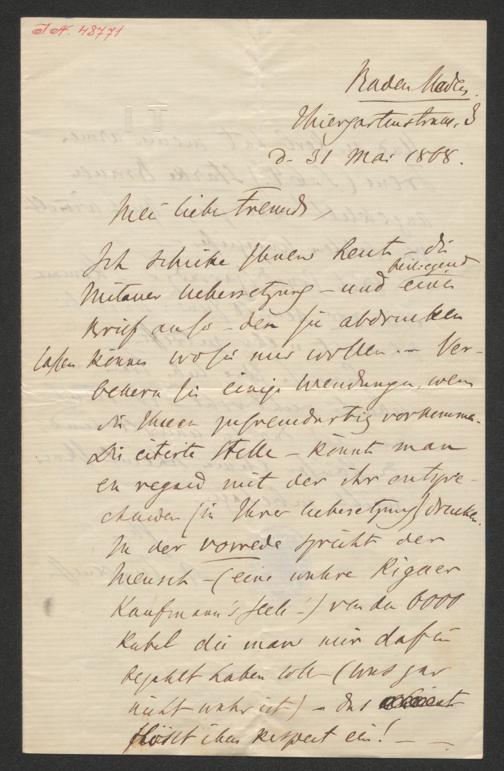 I. N. 48771
Baden Baden.
Thiergartenstrasse, 3
d. 31 Mai 1868.
Mein lieber Freund,
Ich schicke Ihnen heute die
Mitauer Uebersetzung – und
beiliegend
einen
Brief an – den Sie abdrucken
lassen können wo Sie nur wollen. – Ver-
bessern Sie einige Wendungen, wenn
sie Ihnen zu fremdartig vorkommen.
Die citierte Stelle – könnte man
en regard mit der ihr entspre-
chenden (in Ihrer Uebersetzung) drucken.
In der Vorrede spricht der
Mensch – (eine wahre Rigaer
Kaufmann's Seele!) von den 6000
Rubel die man mir dafür
bezahlt haben soll – (was gar
nicht wahr ist) – das
flösst ihm Respect ein! –